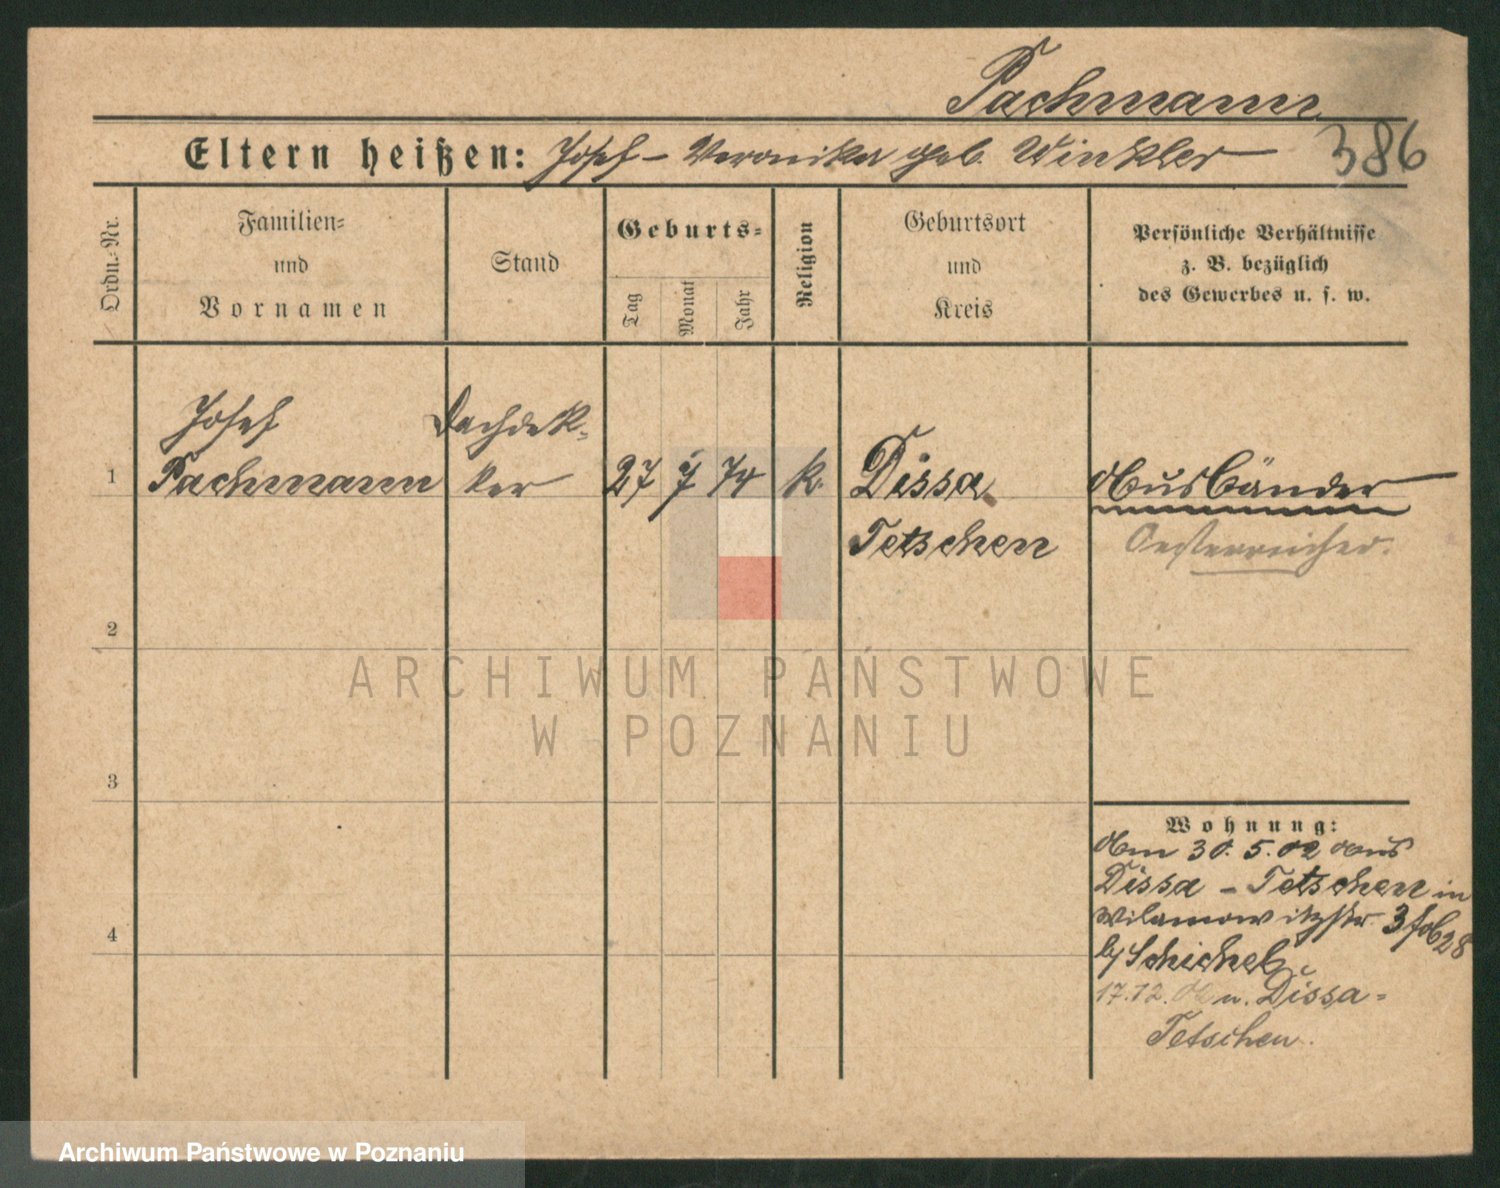 Pachmann
Eltern heißen: Josef – Veronika geb. Winkler
386
Ordn.-Nr.
Familien- und Vornamen
Stand
Geburts-
Tag
Monat
Jahr
Religion
Geburtsort und Kreis
Persönliche Verhältnisse z. B. bezüglich des Gewerbes u. s. w.
1
Josef
Pachmann
Dachdek-
ker
27 7 74
k.
Dissa
Tetschen
Ausländer
Oesterreicher.
2
3
4
Wohnung:
Am 30. 5. 02 aus
Dissa – Tetschen in
Wilamowitzstr. 3
by Schichel
17.12. n. Dissa-
Tetschen.
ARCHIWUM PAŃSTWOWE
W POZNANIU
Archiwum Państwowe w Poznaniu